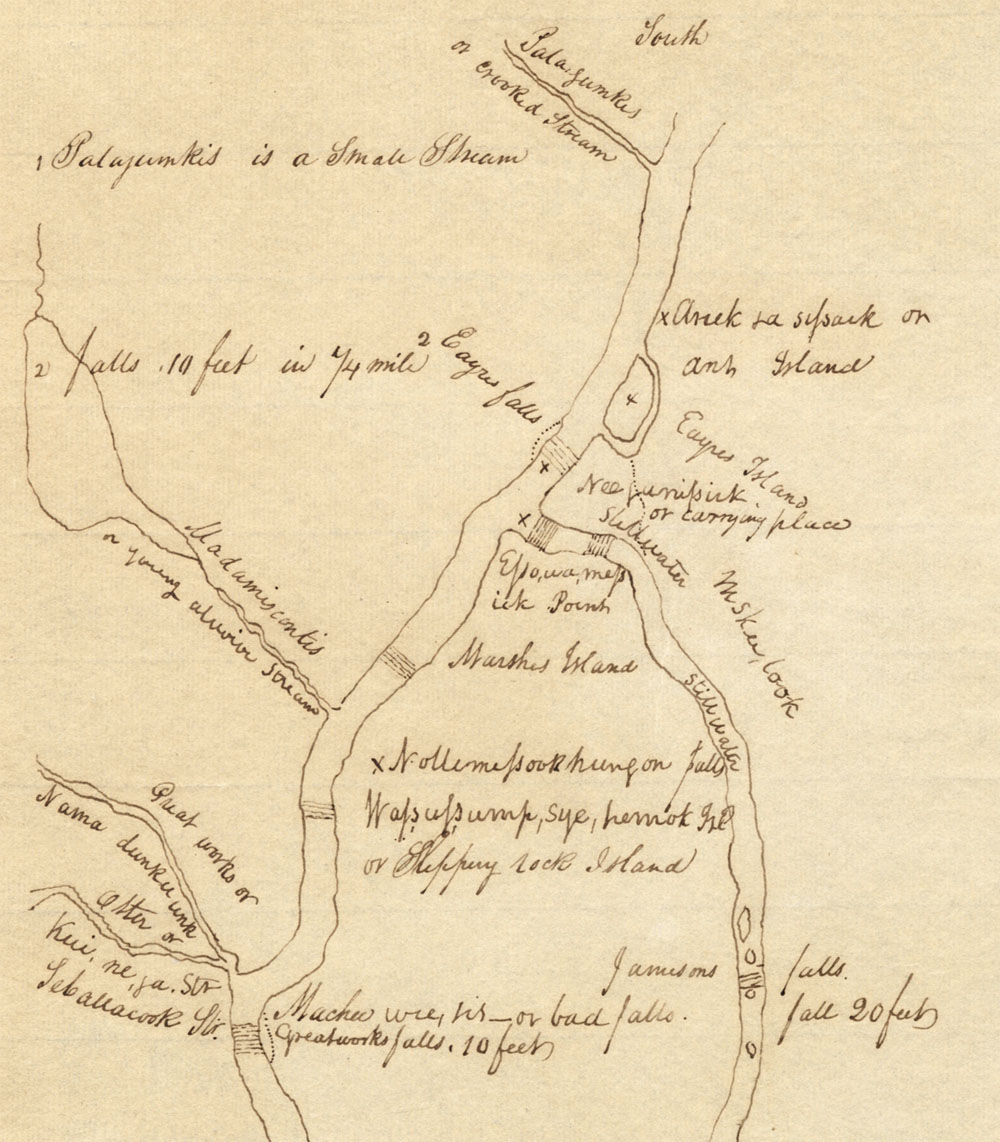 South
Palagumkis
or crooked Stream
1 Palagumkis is a Small Stream
x Arick ta sissack or
ants Island
2 falls .10 feet in 1/4 mile
2 Eayres falls
Eayres Island
Nee gunissick
or carrying place
Stillwater
Madamiscontis
or young alwive Stream
Esso,wa,mess
ick Point
Marshes Island
Mskee,took
stillwater
x Nollemessookhungon falls
Wassussump,sye,hemok Isl
or Slippery rock Island
Great works or
Nama dunkee unk
Otter or
Kui,ne,ga. Str
Seballacook Str.
Machee wee,sis — or bad falls.
Greatworks falls. 10 feet
Jamesons falls.
fall 20 feet